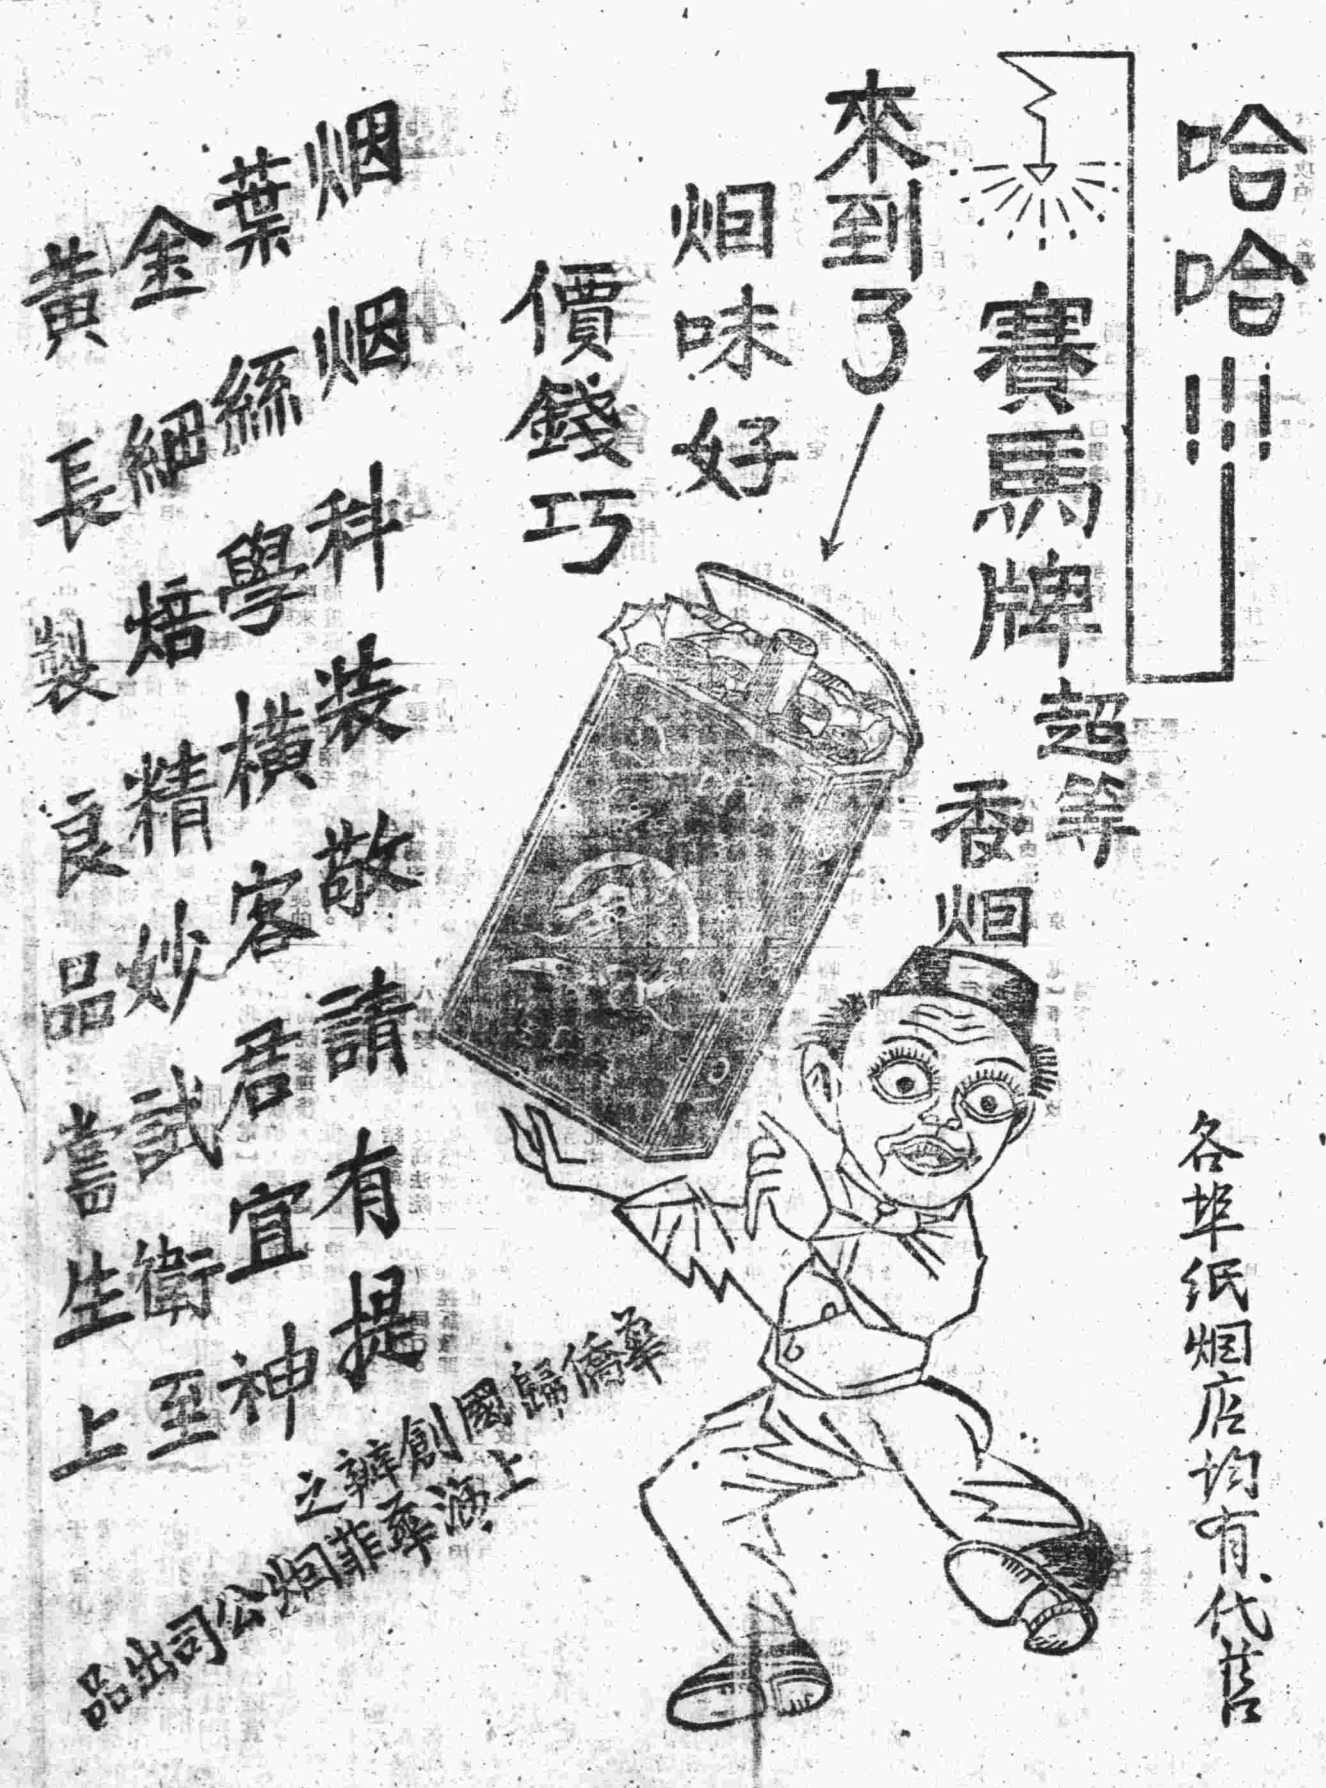 哈哈!!!
賽馬牌
超等
香烟
來到了
烟味好
價錢巧
烟葉金黃
烟絲細長
科學焙製
装橫精良
敬客妙品
請君試嘗
有宜衛生
提神至上
華僑歸國創辦之
上海華菲烟公司出品
各埠紙烟店均有代售